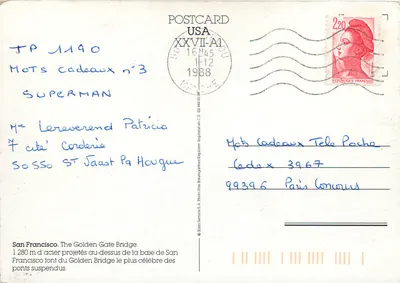 POSTCARD
USA
XXVII-A1
16H45
1-12
1988
MANCHE
2,20
TP 1190
MOTS cadeaux n°3
SUPERMAN
Me Lereverend Patricia
7 cité Corderie
50550 ST Vaast La Hougue
Mots Cadeaux Tele Poche
Cedex 3967
99396 Paris Concours
San Francisco. The Golden Gate Bridge.
1 280 m d'acier projetés au-dessus de la baie de San
Francisco font du Golden Bridge le plus célèbre des
ponts suspendus.